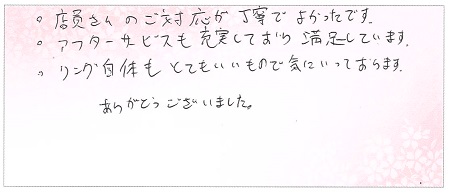 。店員さんのご対応が丁寧でよかったです.
。アフターサービスも充実しており満足しています.
。リング自体もとてもいいもので気にいっております.
ありがとうございました。